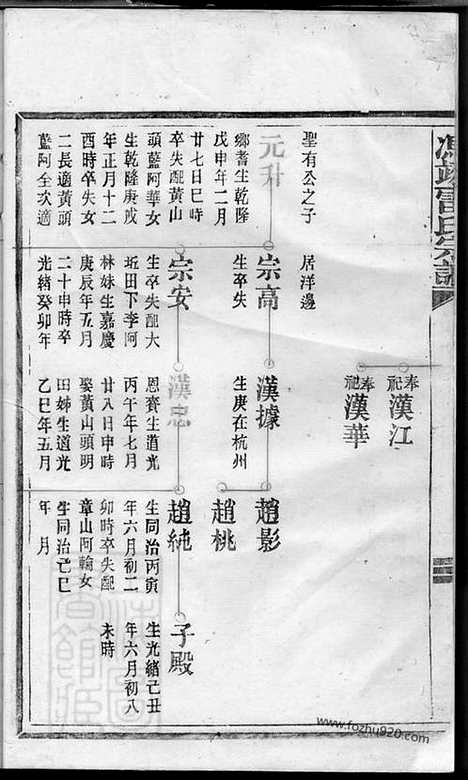 馮翊雷氏宗譜
奉祀漢江
奉祀漢華
聖有公之子
居洋邊
元升
鄉耆生乾隆
戊申年二月
廿七日巳時
卒失配黃山
頭藍阿華女
生乾隆庚戌
年正月十二
酉時卒失女
二長適黃頭
藍阿全次適
宗高
生卒失
宗安
生卒失配大
近田下李阿
林妹生嘉慶
庚辰年五月
二十申時卒
光緒癸卯年
漢據
生庚在杭州
漢忠
恩賚生道光
丙午年七月
廿八日申時
娶黃山頭明
田姊生道光
乙巳年五月
趙影
趙桃
趙純
生同治丙寅
年六月初二
卯時卒失配
章山阿翰女
生同治巳
年 月
子殿
生光緒己丑
年六月初八
未時
www.fozhu920.com